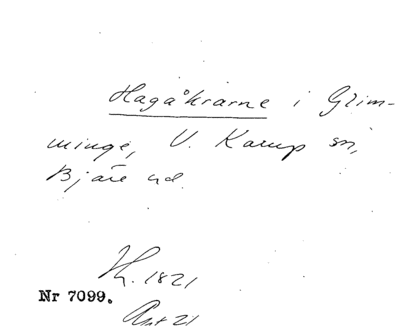 Hagåkrarne i Grim-
minge, V. Karup sn,
Bjäre hd.
Lh. 1821
Nr 7099.
Akt 21